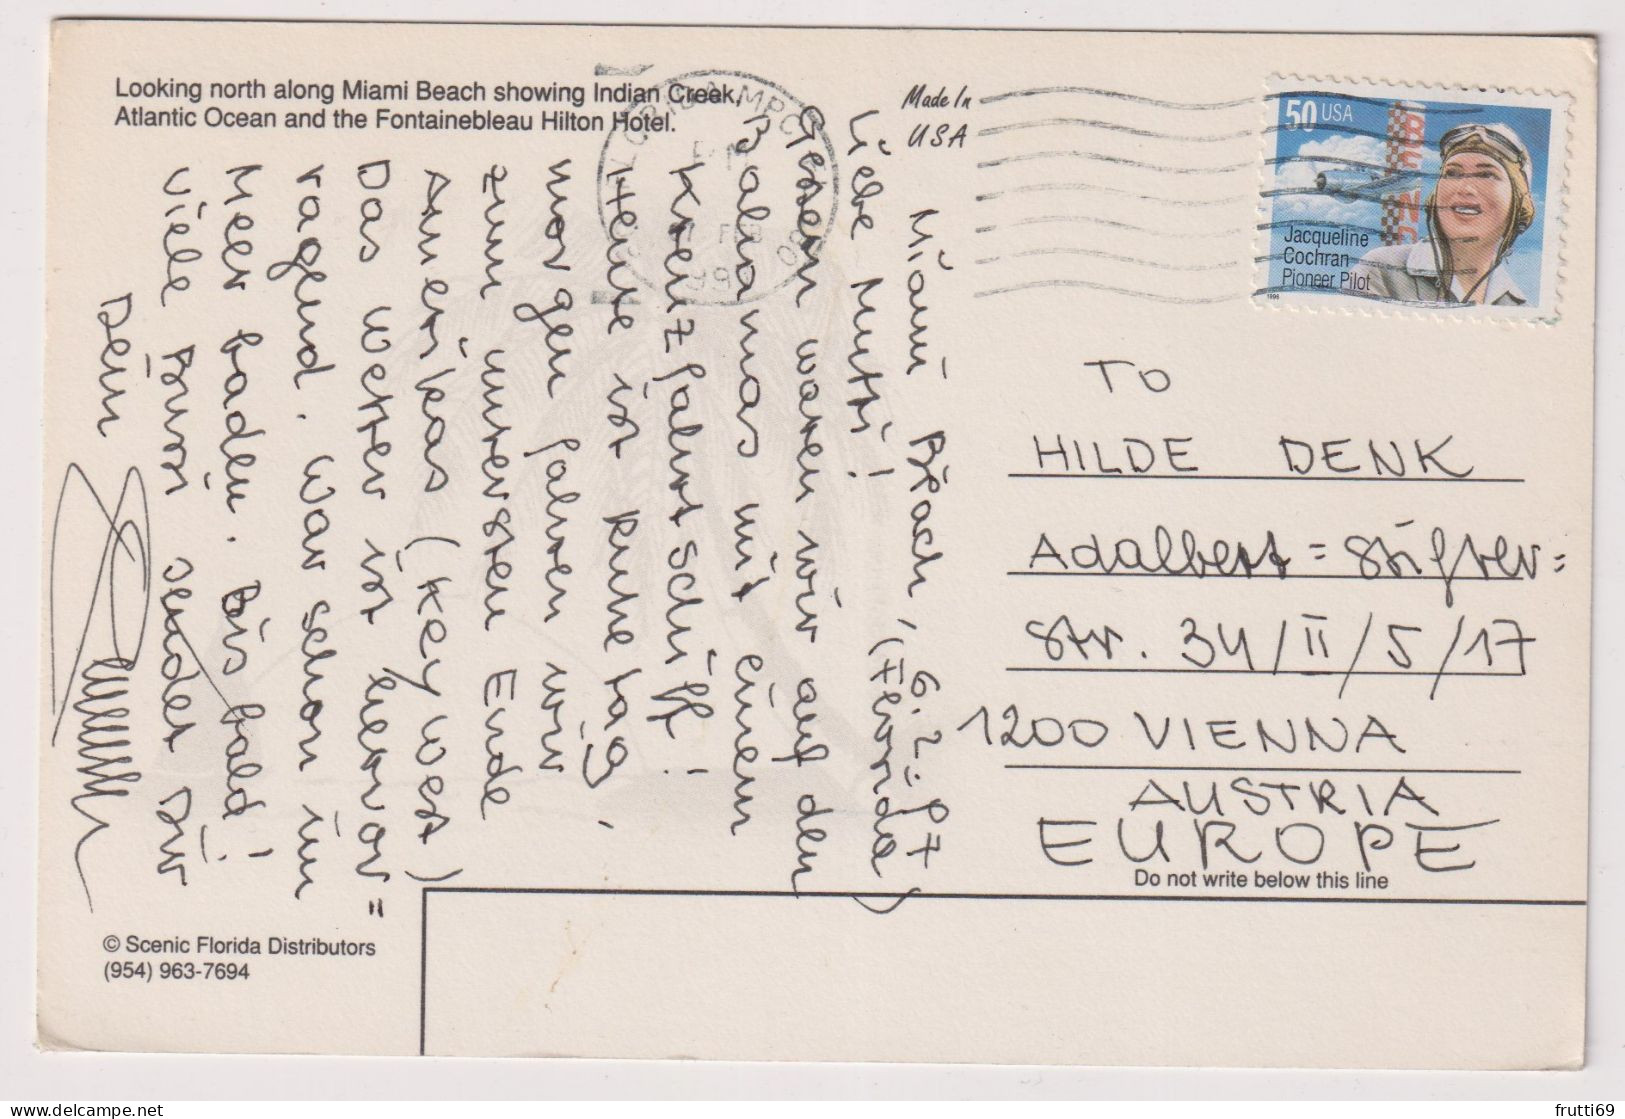 Looking north along Miami Beach showing Indian Creek,
Atlantic Ocean and the Fontainebleau Hilton Hotel.
Made In
USA
50 USA
Jacqueline
Cochran
Pioneer Pilot
1996
Miami Beach, 6.2.97
(Florida)
Liebe Mutti!
Gestern waren wir auf den
Bahamas mit einem
Kreuzfahrtschiff!
Heute ist Ruhetag,
morgen fahren wir
zum untersten Ende
Amerikas (Key West)
Das Wetter ist hervor=
ragend. War schon im
Meer baden. Bis bald!
Viele Bussi sendet Dir
Dein
TO
HILDE DENK
Adalbert=Stifter=
Str. 34/II/5/17
1200 VIENNA
AUSTRIA
EUROPE
Do not write below this line
© Scenic Florida Distributors
(954) 963-7694
frutti69